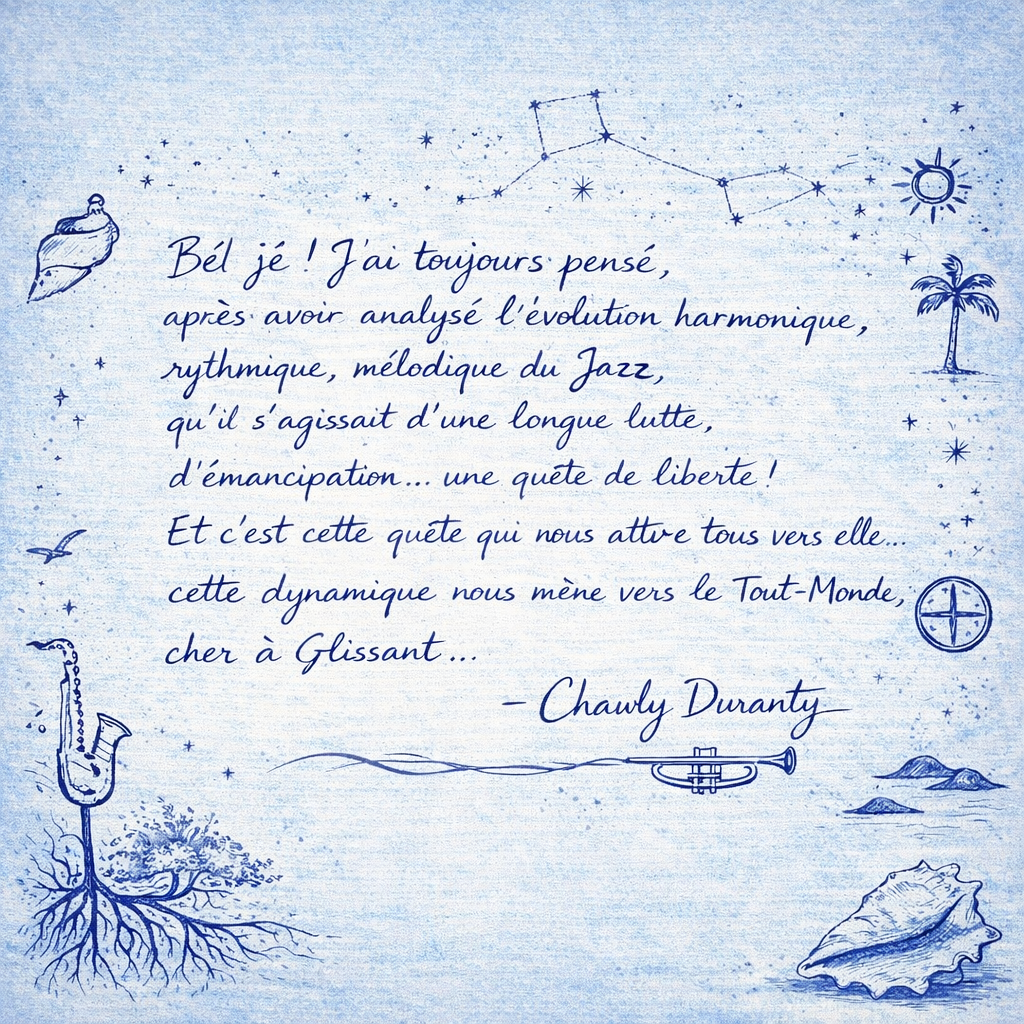 Bél jé ! J'ai toujours pensé,
après avoir analysé l'évolution harmonique,
rythmique, mélodique du Jazz,
qu'il s'agissait d'une longue lutte,
d'émancipation... une quête de liberte !
Et c'est cette quête qui nous attire tous vers elle...
cette dynamique nous mène vers le Tout-Monde,
cher à Glissant...
- Chawly Duranty